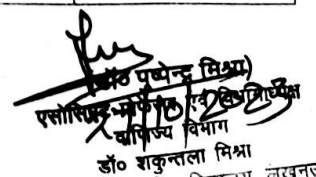 (डॉ० पुष्पेन्द्र मिश्रा)
एसोसिएट प्रोफेसर एवं विभागाध्यक्ष
वाणिज्य विभाग
डॉ० शकुन्तला मिश्रा
लखनऊ